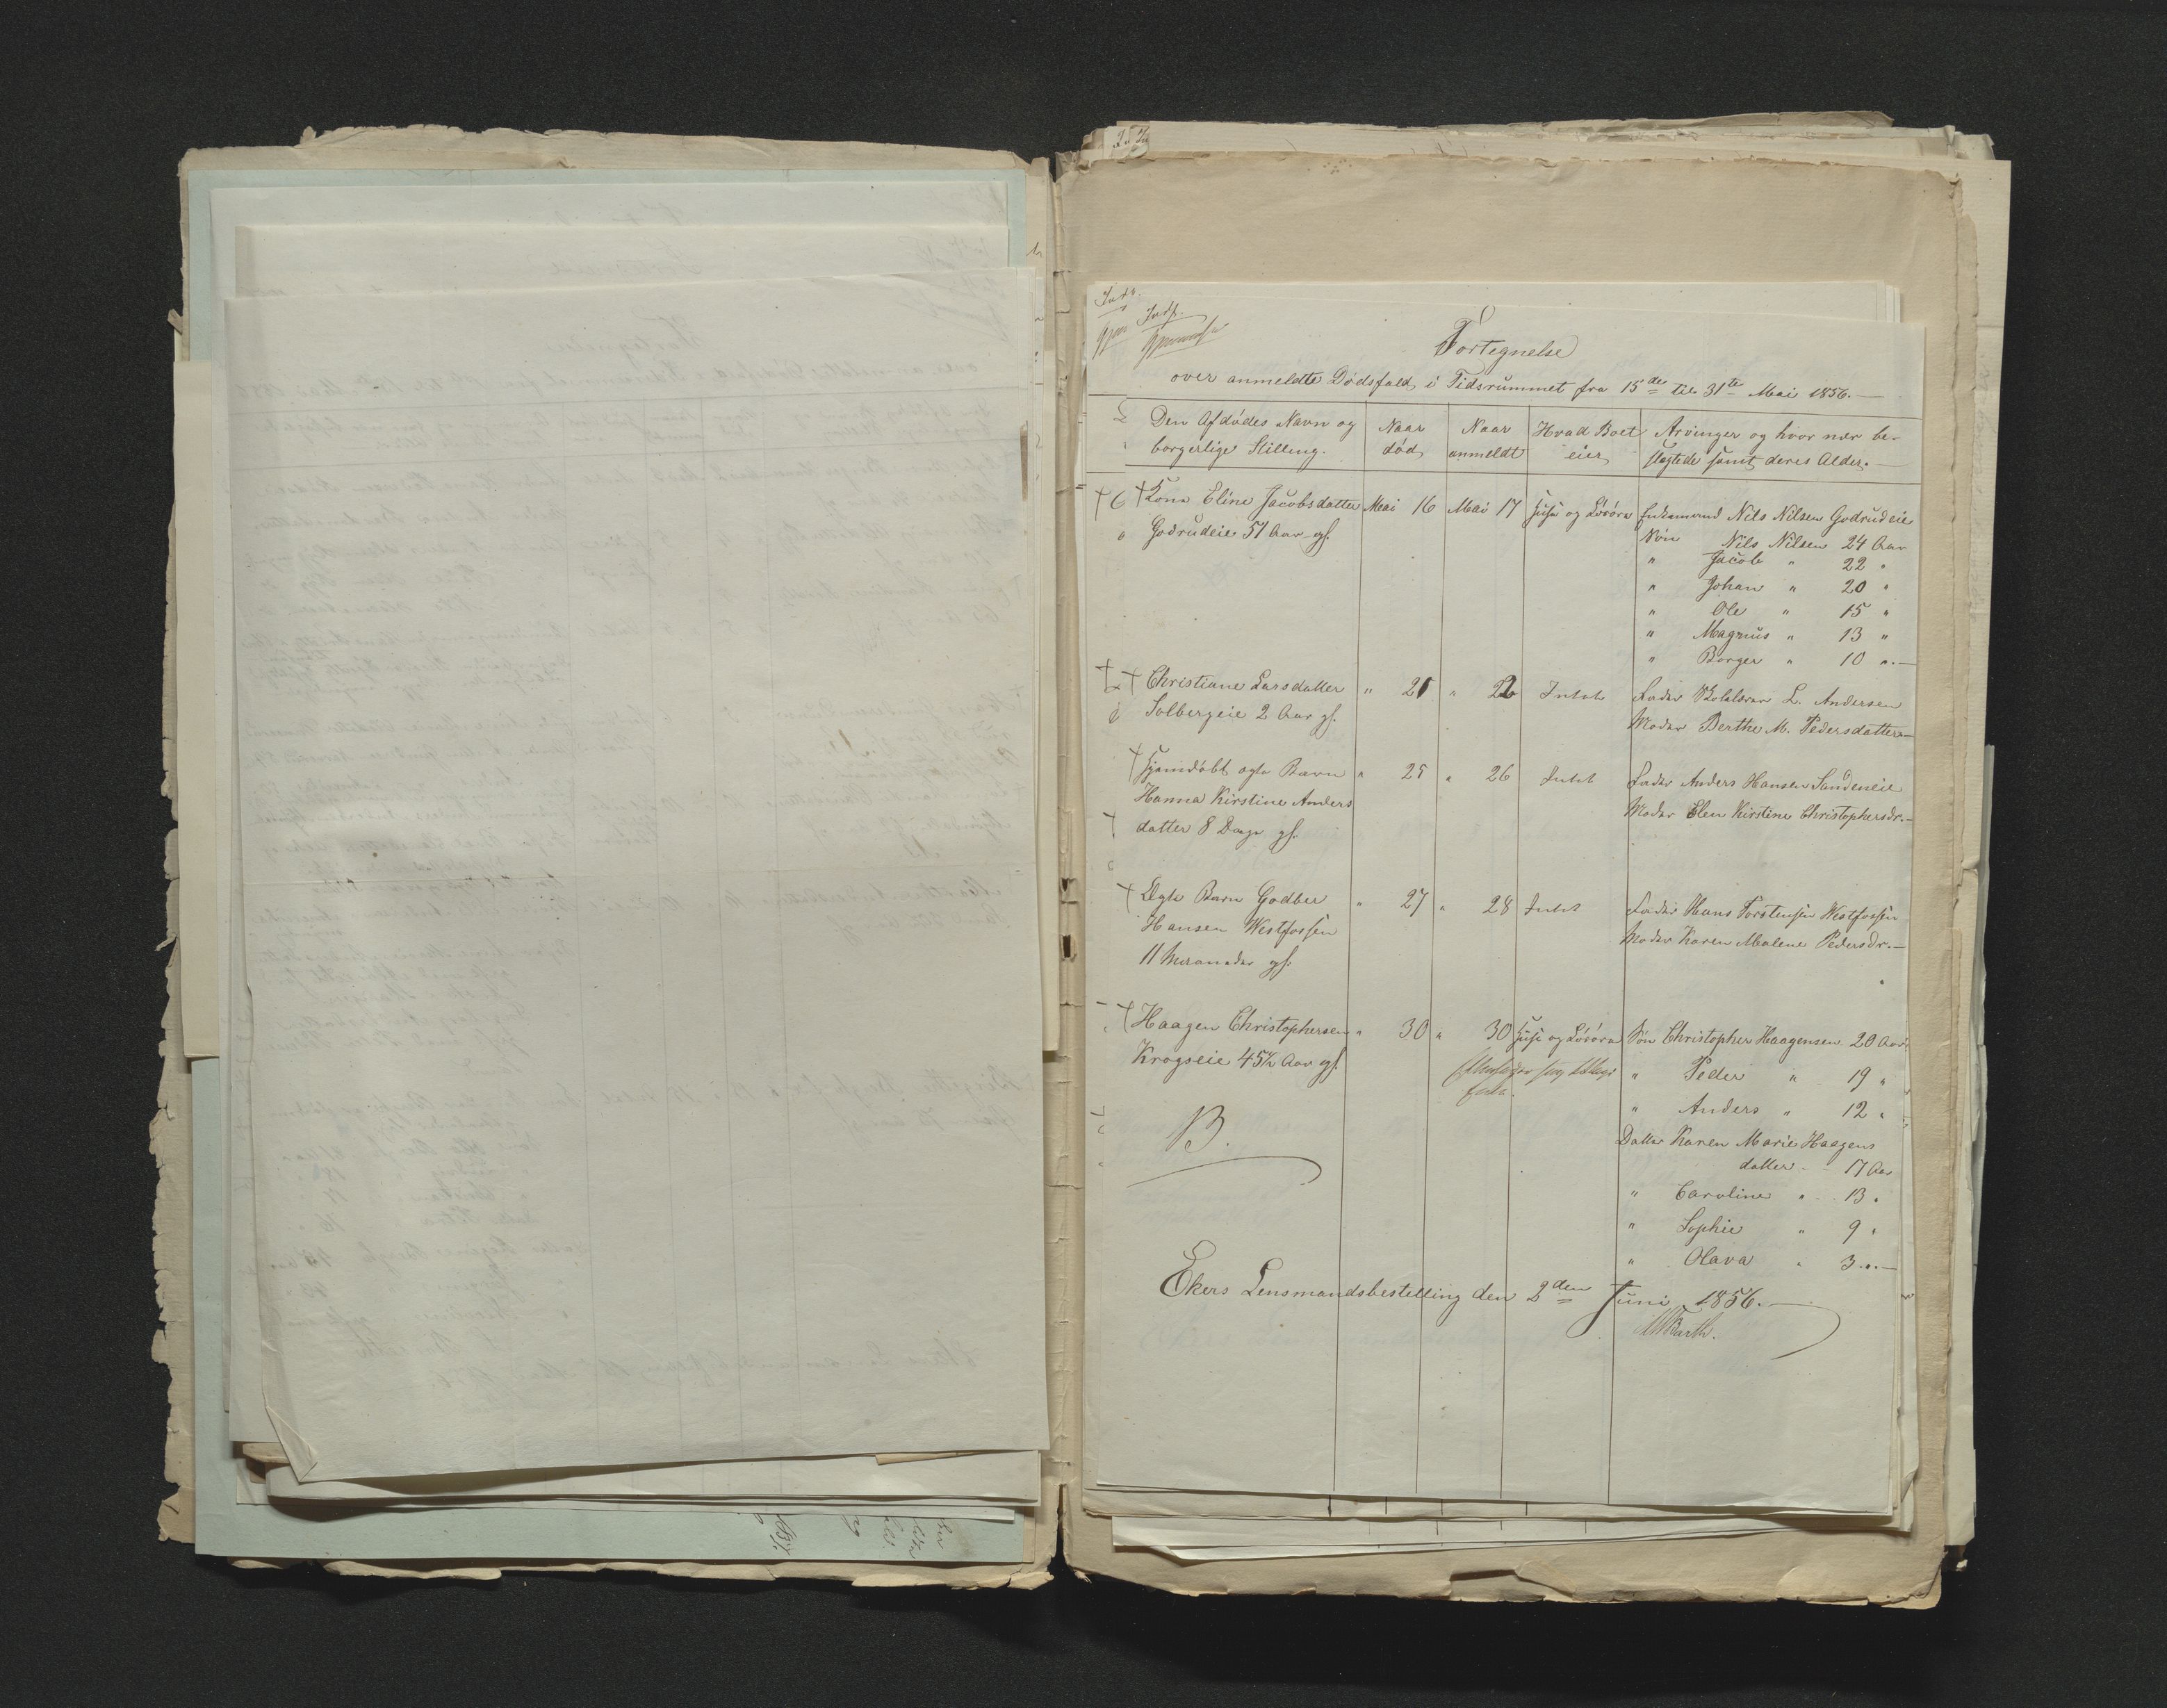 Fortegnelse
over anmeldte Dødsfald i Tidsrummet fra 15de til 31te Mai 1856.
Den Afdødes Navn og borgerlige Stilling.
Naar død
Naar anmeldt
Hvad Boet eier
Arvinger og hvor nær beslægtede samt deres Alder.
Kone Eline Jacobsdatter Mai 16 Mai 17 Huse og Løsøre Enkemand Nils Nilsen Godrudeie
Godrudeie 51 Aar gl.
Søn Nils Nilsen 24 Aar
" Jacob " 22 "
" Johan " 20 "
" Ole " 15 "
" Magnus " 13 "
" Borger " 10 ".
Christiane Larsdatter " 21 " 22 Intet Fader L. Andersen
Solbergeie 2 Aar gl.
Moder Berthe M. Pedersdatter
Hjemdøbt ægte Barn " 25 " 26 Intet Fader Anders Hansen Sandeneie
Hanna Kirstine Anders
Moder Elen Kirstine Christophersdr.
datter 8 Dage gl.
Ægte Barn Godber " 27 " 28 Intet Fader Hans Torstensen Westfossen
Hansen Westfossen
Moder Karen Malene Pedersdr.
11 Maaneder gl.
Haagen Christophersen " 30 " 30 Huse og Løsøre Søn Christopher Haagensen 20 Aar
Krogseie 45½ Aar gl.
" Peder " 19 "
" Anders " 12 "
B.
Datter Karen Marie Haagens
datter 17 Aar
" Caroline " 13 "
" Sophie " 9 "
" Olava " 3 ".
Ekers Lensmandsbestilling den 2den Juni 1856.
Barth.